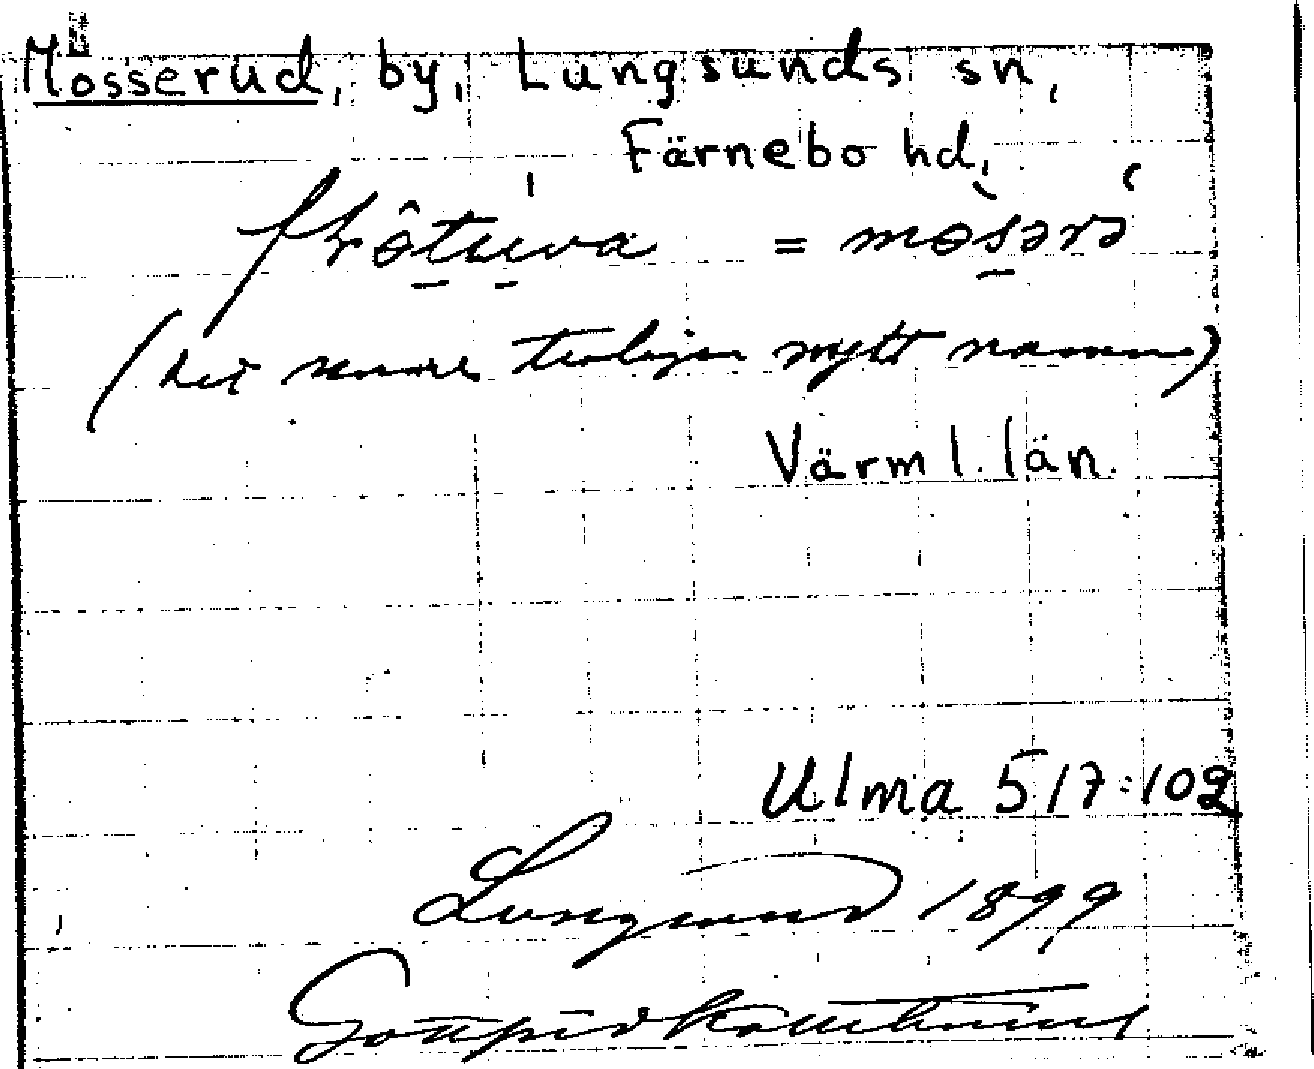 Mosserud, by, Lungsunds sn,
Färnebo hd,
= mosərə
(det senare troligen nytt namn)
Värml. län.
Ulma 517:102
Lungsund 1899
Gottfrid Kallstenius